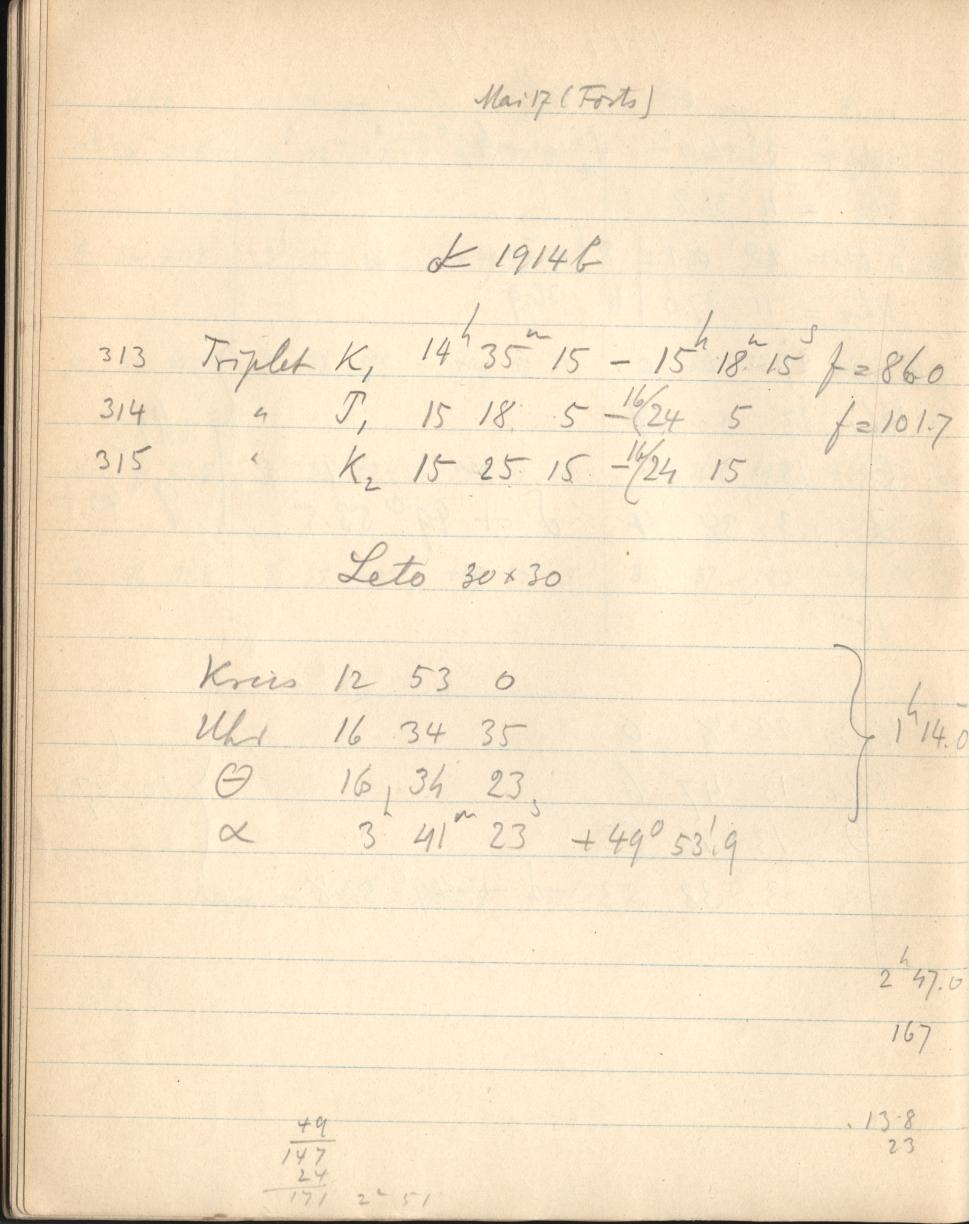 Mai 17 (Forts)
1914 b
313 Triplet K₁ 14ʰ 35ᵐ 15 – 15ʰ 18ᵐ 15ˢ f = 86.0
314 " J₁ 15 18 5 – 16 24 5 f = 101.7
315 " K₂ 15 25 15 – 16 24 15
Leto 30×30
Kreis 12 53 0
Uhr 16 34 35
Θ 16 34 23 1ʰ 14.0
α 3ʰ 41ᵐ 23ˢ + 49° 53'.9
2ʰ 47.0
167
13.8
23
49
147
24
171 2ʰ 51